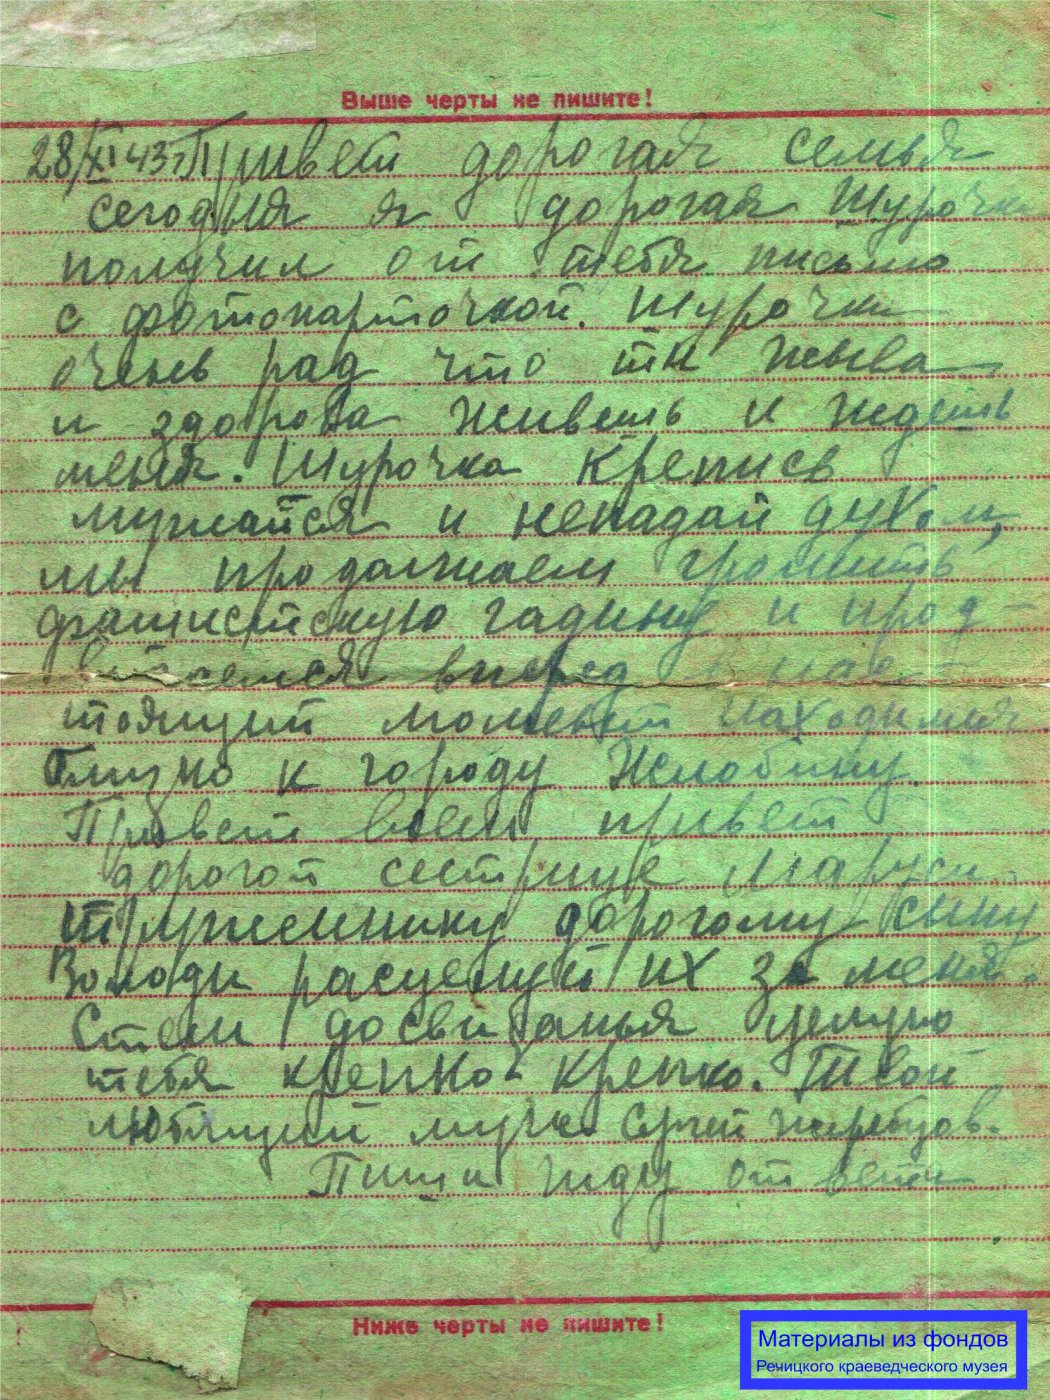 Выше черты не пишите!
28/XI 43г Привет дорогая семья
сегодня я дорогая Шурочка
получил от тебя письмо
с фотокарточкой. Шурочка
очень рад что ты жыва
и здорова живешь и ждешь
меня. Шурочка крепись
мужайся и непадай духом,
мы продолжаем громить
фашистскую гадину и прод-
вперед нас-
тоящий момент находимся
близко к городу Жлобину.
Привет всем привет
дорогой сестрице Маруси
труженнику дорогому сыну
Володи расцелуй их за меня.
досвиданья целую
тебя крепко-крепко. Твой
любящий муж Сергей Жеребцов.
Пиши жду ответа
Ниже черты не пишите!
Материалы из фондов
Речицкого краеведческого музея